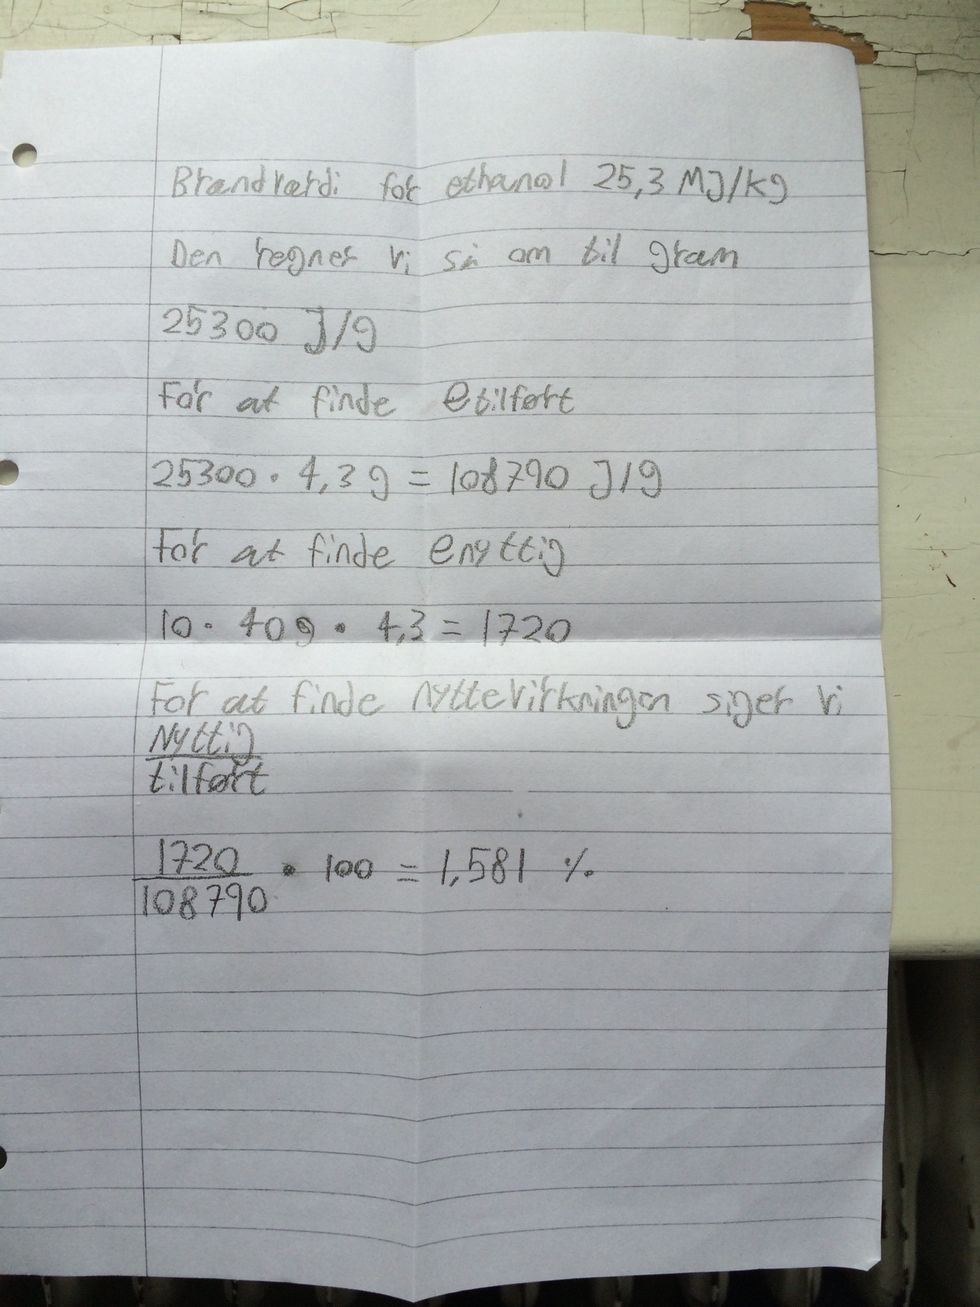 Brandværdi for ethanol 25,3 MJ/kg
Den regner vi så om til gram
25300 J/g
For at finde etilført
25300 · 4,3 g = 108790 J/g
For at finde enyttig
10 · 40g · 4,3 = 1720
For at finde nyttevirkningen siger vi
Nyttig
tilført
1720
108790 · 100 = 1,581 %